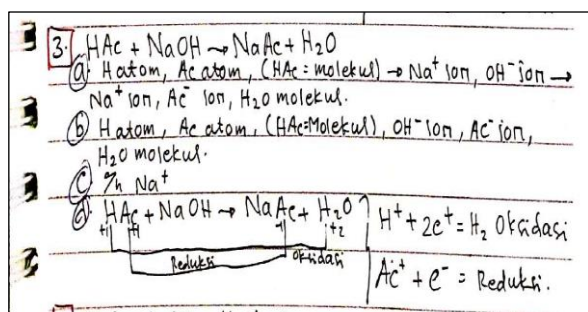 3. HAc + NaOH → NaAc + H2O
a) H atom, Ac atom, (HAc = molekul) → Na+ ion, OH- ion →
Na+ ion, Ac- ion, H2O molekul.
b) H atom, Ac atom, (HAc=Molekul), OH- ion, AC- ion,
H2O molekul.
c) Na+
d) HAc + NaOH → NaAc + H2O
+1 +1 -1 +2
Reduksi Oksidasi
H+ + 2e+ = H2 Oksidasi
Ac+ + e- = Reduksi.